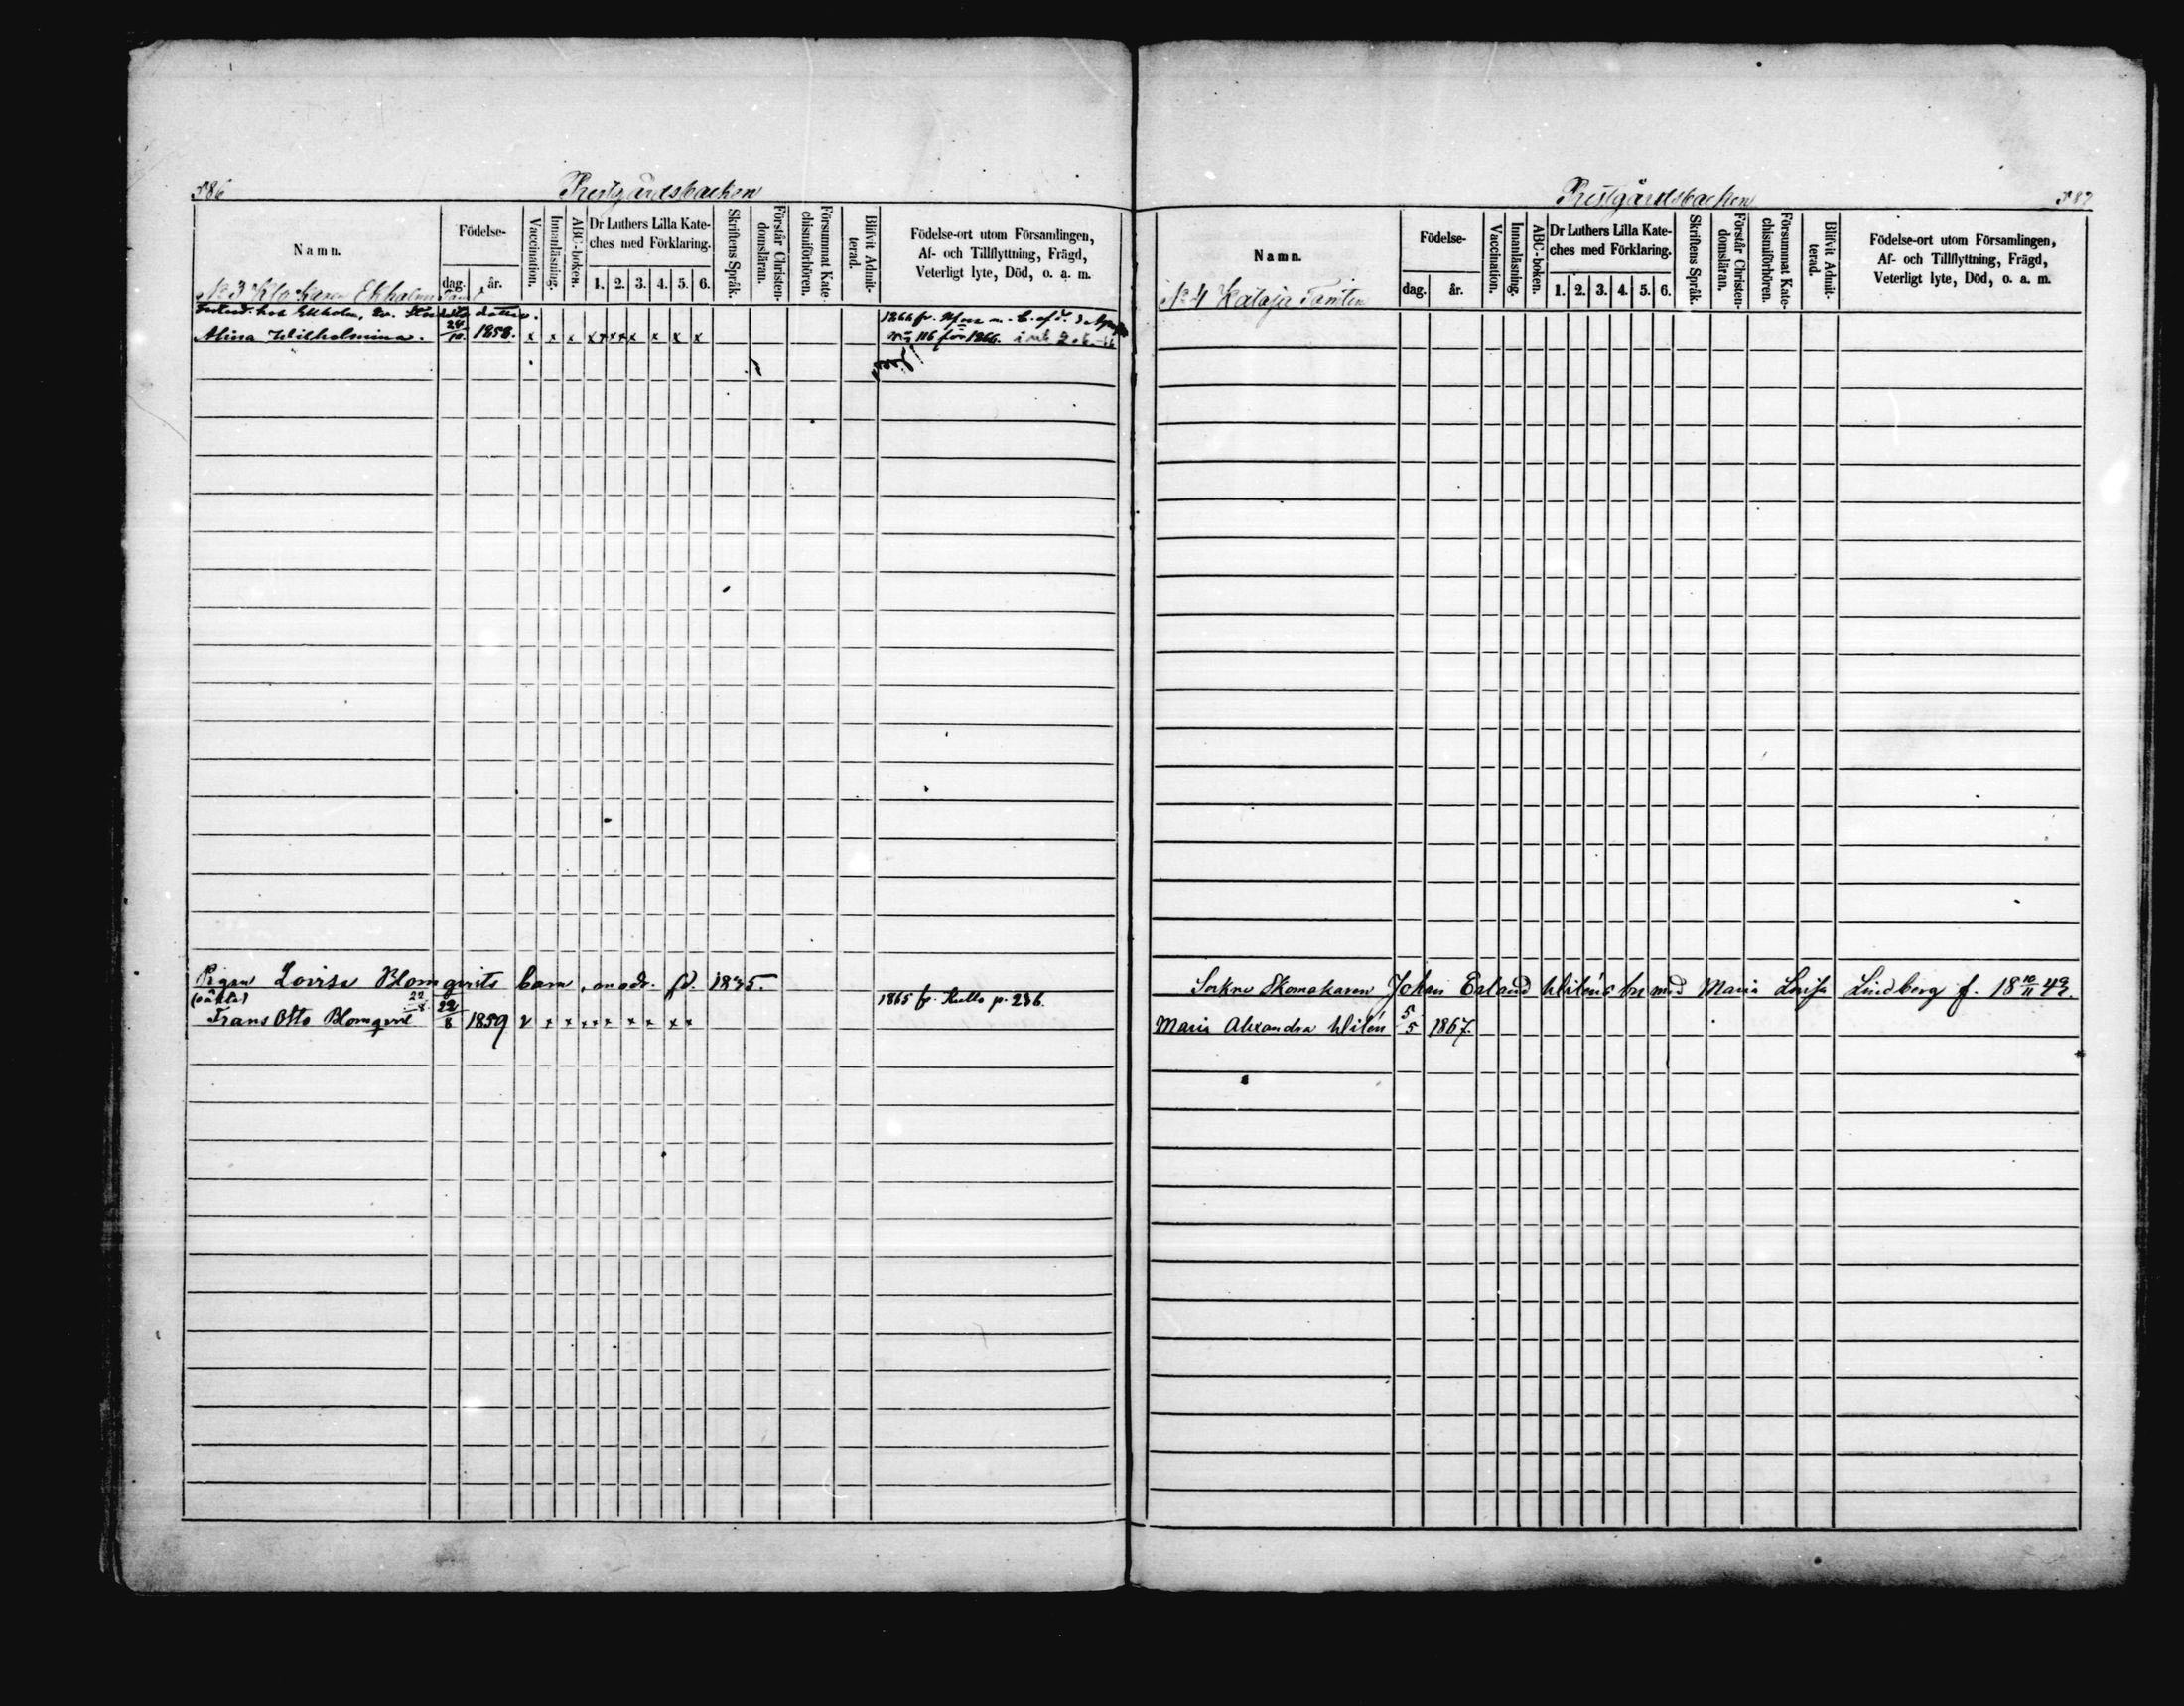 Prestgårdsbacken
Namn.
Födelse-
dag.
år.
Vaccination.
Innanläsning.
ABC-boken.
Dr Luthers Lilla Kate-
ches med Förklaring.
1. 2. 3. 4. 5. 6.
Skriftens Språk.
Förstår Christen-
domsläran.
Försummat Kate-
chismiförhören.
Blifvit Admit-
terad.
Födelse-ort utom Församlingen,
Af- och Tillflyttning, Frägd,
Veterligt lyte, Död, o. a. m.
No 3 Klockaren Ekholm
hos Ekholm, dotter.
Alina Wilhelmina. 24/10. 1858. x x x x x x x x x x
1866 fr.
No 116 för 1866.
Pigan Lovisa Blomqvists barn, modr. fd. 1835.
(oäkta)
Frans Otto Blomqvist 22/8 1859 v x x x x x x x x x
1865 fr. Kullo p. 236.
Prestgårdsbacken
Namn.
Födelse-
dag.
år.
Vaccination.
Innanläsning.
ABC-boken.
Dr Luthers Lilla Kate-
ches med Förklaring.
1. 2. 3. 4. 5. 6.
Skriftens Språk.
Förstår Christen-
domsläran.
Försummat Kate-
chismiförhören.
Blifvit Admit-
terad.
Födelse-ort utom Församlingen,
Af- och Tillflyttning, Frägd,
Veterligt lyte, Död, o. a. m.
No 4 Kataja Tomten
Sockne Skomakaren Johan Erland Wiléns bn med Maria Lovisa Lindberg f. 18
Maria Alexandra Wilén 5/5 1867.